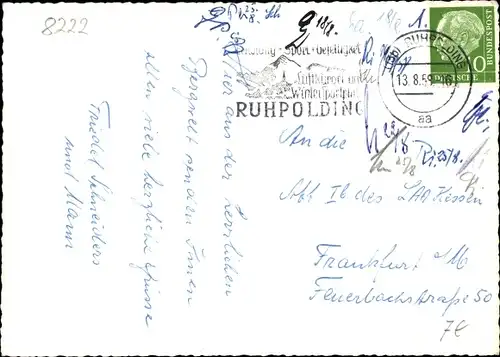 8222
Erholung - Sport - Geselligkeit
Luftkurort und
Wintersportplatz
RUHPOLDING
RUHPOLDING
13.8.59
aa
DEUTSCHE
BUNDESPOST
10
18/8.
Ri 25/8.
Hier aus der herrlichen
Bergwelt senden Ihnen
allen viele herzliche Grüsse
Friedel Schneiders
und Mann
An die
Abt Ib des LAA Hessen
Frankfurt a/M
Feuerbachstraße 50
7€